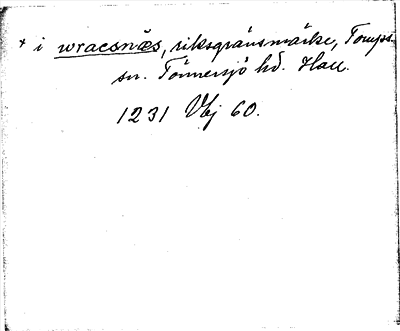 + i wracsnæs, riksgränsmärke, Tomps.
sn. Tönnersjö hd. Hall.
1231 Vbj 60.